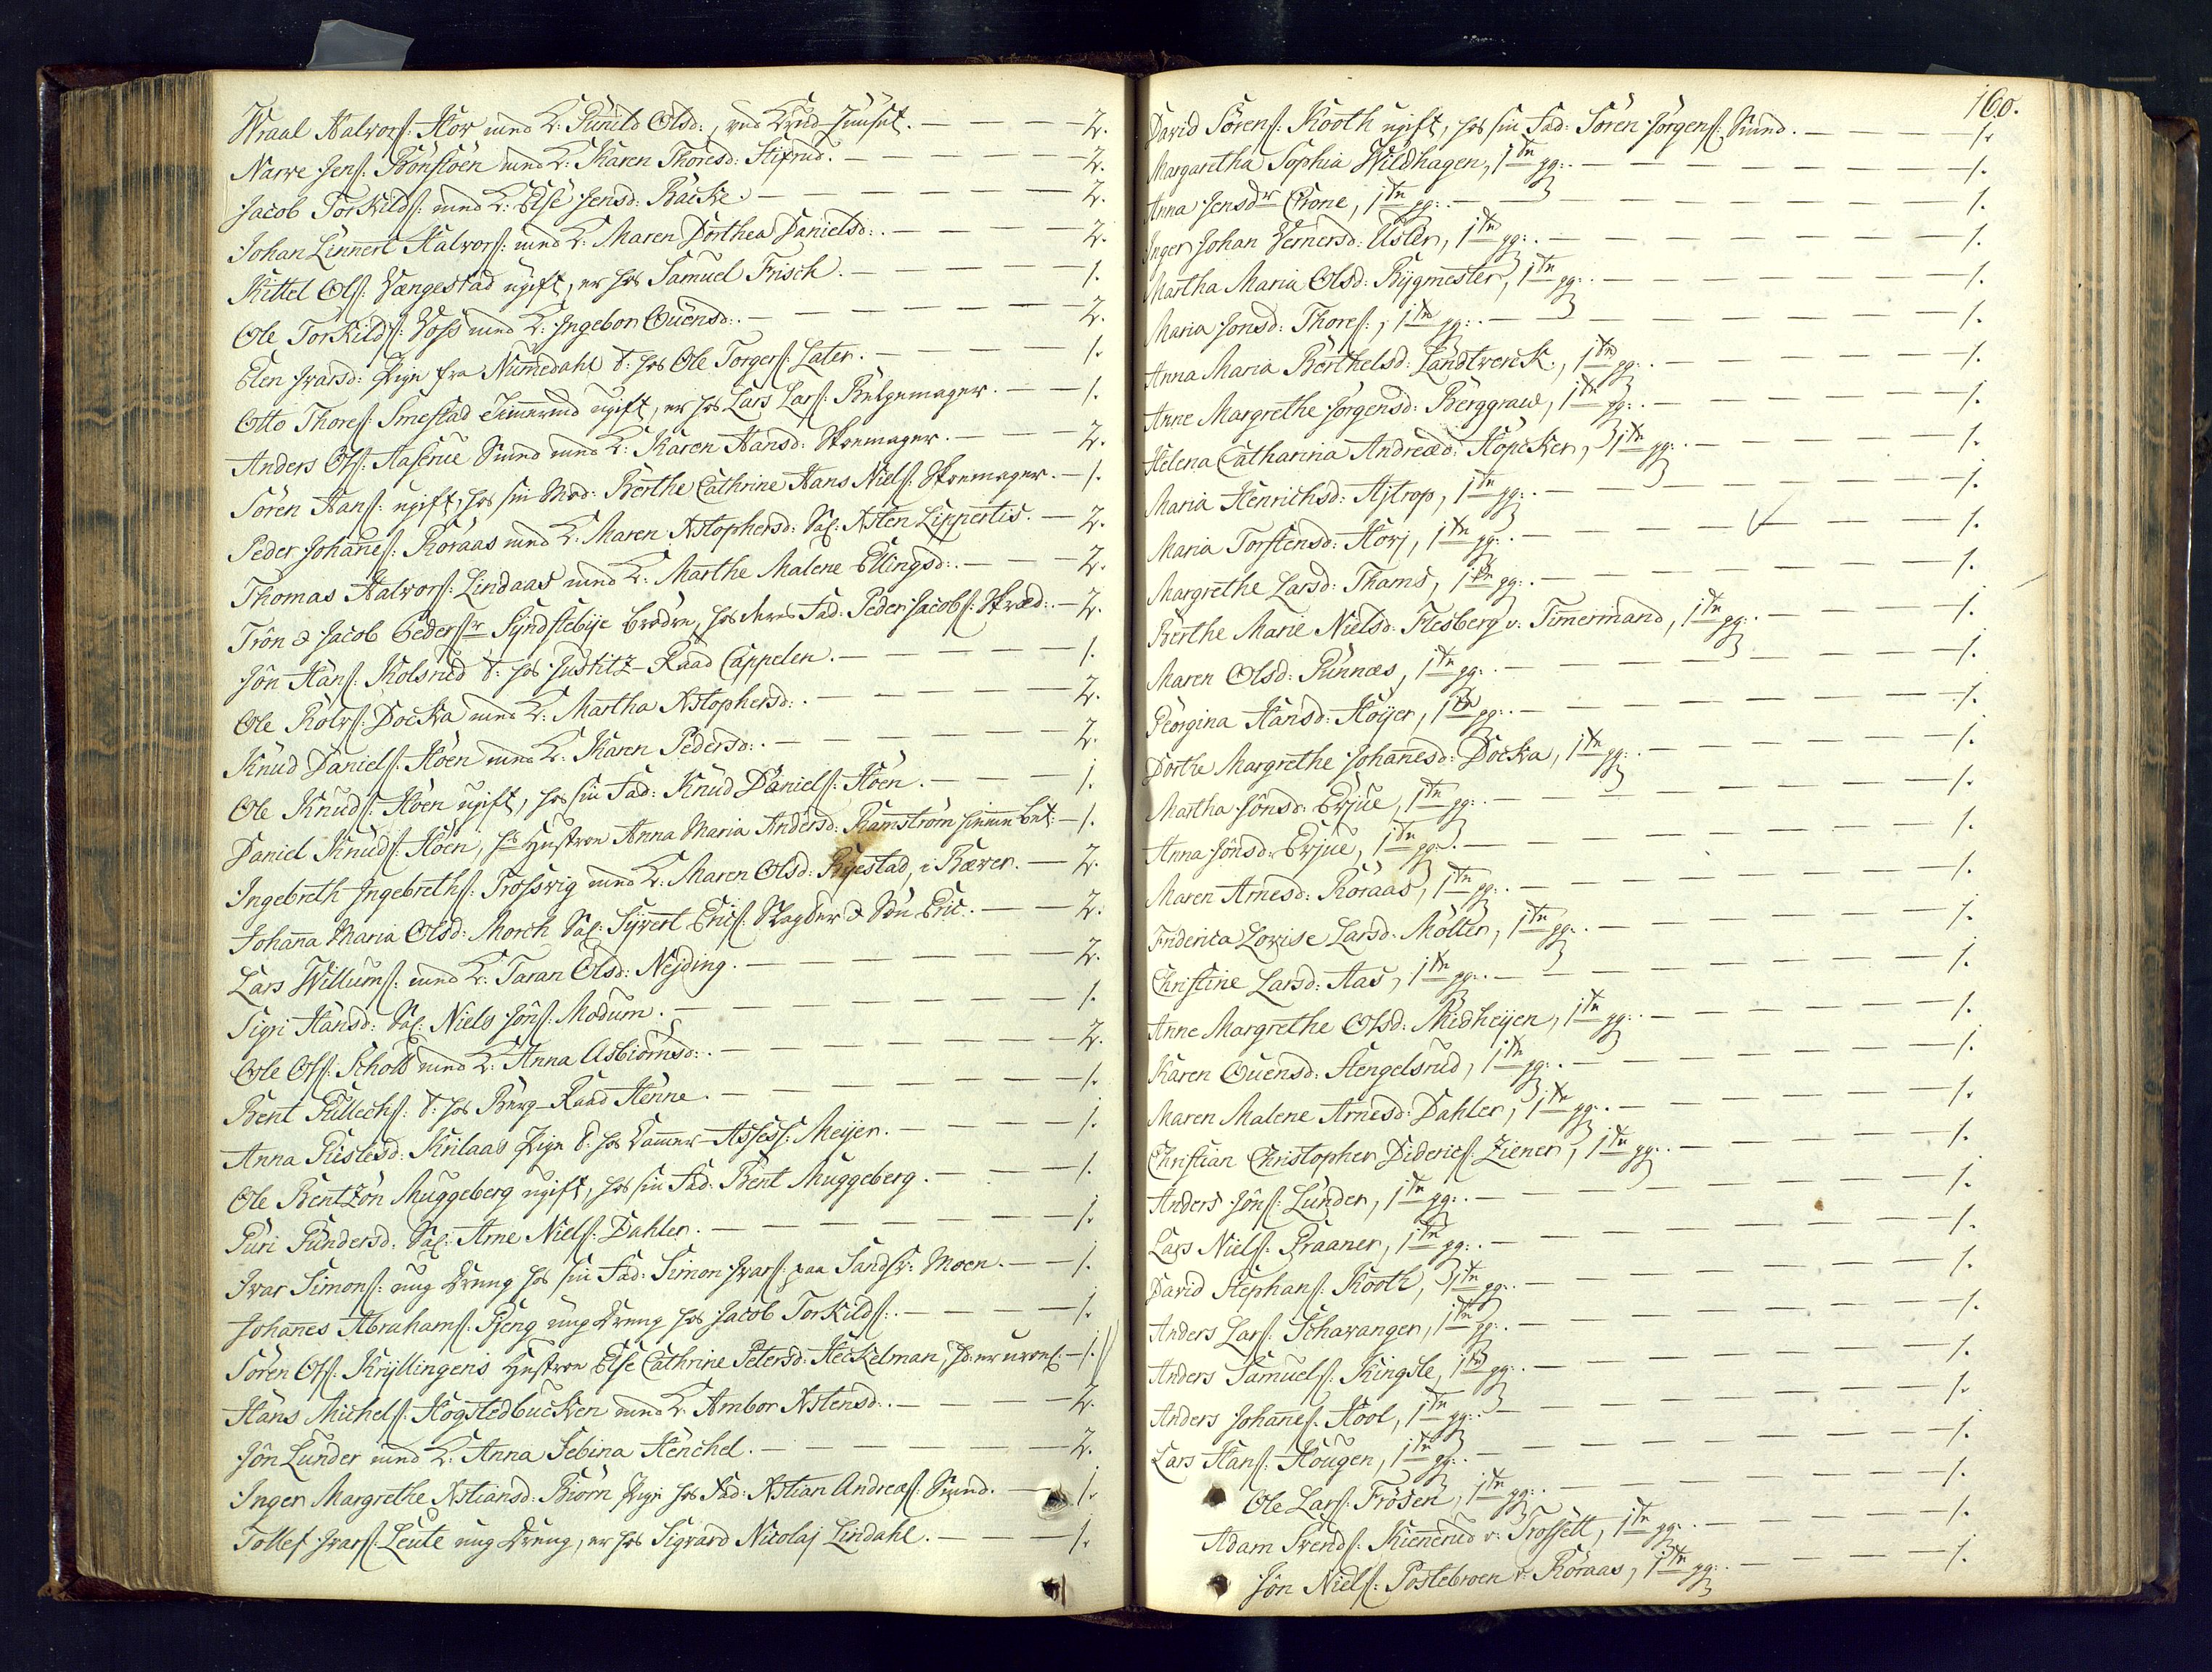 Wraal Halvors: Hov med K: Gunild Olsd:, ved Lund-Huuset. — 2.
Narve Jens: Bönstöen med K: Karen Thoresd: Stifrud. — 2.
Jacob Torkilds: med K: Else Jensd: Backe. — 2.
Johan Linnert Halvors: med K: Maren Dorthea Danielsd:. — 2.
Kittel Ols: Vangestad ugift, er hos Samuel Frisch. — 1.
Ole Torkilds: Voss med K: Ingebor Ouensd:. — 2.
Elen Ivarsd: Pige fra Numedahl t: hos Ole Torgers: Later. — 1.
Otto Thores: Smestad Timmermd ugift, er hos Lars Lars: Belgemager. — 1.
Anders Ols: Aaserue Smed med K: Karen Hansd: Skoemager. — 2.
Sören Hans: ugift, hos sin Mod: Berthe Cathrine Hans Niels: Skoemager. — 1.
Peder Johañes: Röraas med K: Maren Xstophersd: Sal: Xsten Lippertis. — 2.
Thomas Halvors: Lindaas med K: Marthe Malene Ellingsd:. — 2.
Trön & Jacob Peders:r Syndstebÿe brödre, hos deres Fad: Peder Jacobs: Skræd:. — 2.
Jön Hans: Kolsrud t: hos Justitz-Raad Cappelen. — 1.
Ole Rolvs: Docka med K: Martha Xstophersd:. — 2.
Knud Daniels: Höen med K: Karen Pedersd:. — 2.
Ole Knuds: Höen ugift, hos sin Fad: Knud Daniels: Höen. — 1.
Daniel Knuds: Höen, hs Hustroe Anna Maria Andersd: Ramström — 1.
Ingebreth Ingebreths: Trosvig med K: Maren Olsd: Rÿestad, i Bæver. — 2.
Johaña Maria Olsd: Morch Sal: Sÿvert Erics: Slagter & Sön Eric. — 2.
Lars Willums: med K: Taran Olsd: Nejding. — 2.
Sigri Hansd: Sal: Niels Jöns: Modum. — 1.
Ole Ols: Schols med K: Anna Asbiörnsd:. — 2.
Bent Gullechs: t: hos Berg-Raad Henne. — 1.
Anna Gislesd: Krilaas Pige t: hos Kammer-Assess: Meijer. — 1.
Ole Bentzön Muggeberg ugift, hos sin Fad: Bent Muggeberg. — 1.
Guri Gundersd: Sal: Arne Niels: Dahler. — 1.
Ivar Simons: ung Dreng hos sin Fad: Simon Ivars: paa Sandsv: Moen. — 1.
Johañes Abrahams: Gjeng ung Dreng hos Jacob Torkilds:. — 1.
Sören Ols: Krÿllingens Hustroe Else Cathrine Petersd: Heckelman, — 1.
Hans Michels: Hogstedbucken med K: Ambor Xstensd:. — 2.
Jön Lunder med K: Anna Sebina Henchel. — 2.
Inger Margrethe Xstiansd: Biörn Pige hos Fad: Xstian Andreas: Smed. — 1.
Tollef Ivars: Leute ung Dreng, er hos Sigvard Nicolaj Lindahl. — 1.
160.
David Sörens: Kooth ugift, hos sin Fad: Sören Jörgens: Smed. — 1.
Margaretha Sophia Wildhagen, 1te gg:. — 1.
Anna Jensdr Crone, 1te gg:. — 1.
Inger Johan Vernersd: Usler, 1te gg:. — 1.
Martha Maria Olsd: Bÿgmester, 1te gg:. — 1.
Maria Jonsd: Thores:, 1te gg:. — 1.
Anna Maria Berthelsd: Landtverck, 1te gg:. — 1.
Anne Margrethe Jörgensd: Berggrave, 1te gg:. — 1.
Helena Catharina Andreæd: Höpcker, 1te gg:. — 1.
Maria Henrichsd: Ajtrop, 1te gg:. — 1.
Maria Torstensd: Hovj, 1te gg:. — 1.
Margrethe Larsd: Thams, 1te gg:. — 1.
Berthe Marie Nielsd: Flesberg v: Timermand, 1te gg:. — 1.
Maren Olsd: Gunnæs, 1te gg:. — 1.
Georgina Hansd: Höijer, 1te gg:. — 1.
Dorthe Margrethe Johañesd: Docka, 1te gg:. — 1.
Martha Jönsd: Evjue, 1te gg:. — 1.
Anna Jönsd: Evjue, 1te gg:. — 1.
Maren Arnesd: Röraas, 1te gg:. — 1.
Friderica Lovise Larsd: Molter, 1te gg:. — 1.
Christine Larsd: Aas, 1te gg:. — 1.
Anne Margrethe Olsd: Midheijen, 1te gg:. — 1.
Karen Ouensd: Stengelsrud, 1te gg:. — 1.
Maren Malene Arnesd: Dahler, 1te gg:. — 1.
Christian Christopher Diderics: Ziener, 1te gg:. — 1.
Anders Jöns: Lunder, 1te gg:. — 1.
Lars Niels: Graaner, 1te gg:. — 1.
David Stephans: Kooth, 1te gg:. — 1.
Anders Lars: Schavanger, 1te gg:. — 1.
Anders Samuels: Kingste, 1te gg:. — 1.
Anders Johañes: Hool, 1te gg:. — 1.
Lars Hans: Hougen, 1te gg:. — 1.
Ole Lars: Frösen, 1te gg:. — 1.
Adam Svends: Kienerud v: Trossett, 1te gg:. — 1.
Jön Niels: Postebroen v: Röraas, 1te gg:. — 1.